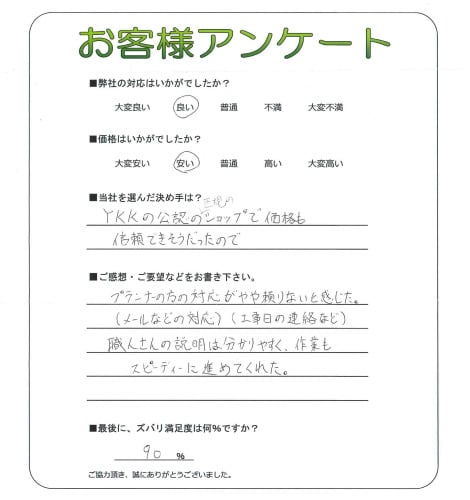 お客様アンケート
■弊社の対応はいかがでしたか？
大変良い　良い　普通　不満　大変不満
■価格はいかがでしたか？
大変安い　安い　普通　高い　大変高い
■当社を選んだ決め手は？
正規の
YKKの公認のショップで価格も
信頼できそうだったので
■ご感想・ご要望などをお書き下さい。
プランナーの方の対応がやや頼りないと感じた。
(メールなどの対応)(工事日の連絡など)
職人さんの説明は分かりやすく、作業も
スピーディーに進めてくれた。
■最後に、ズバリ満足度は何％ですか？
90 ％
ご協力頂き、誠にありがとうございました。